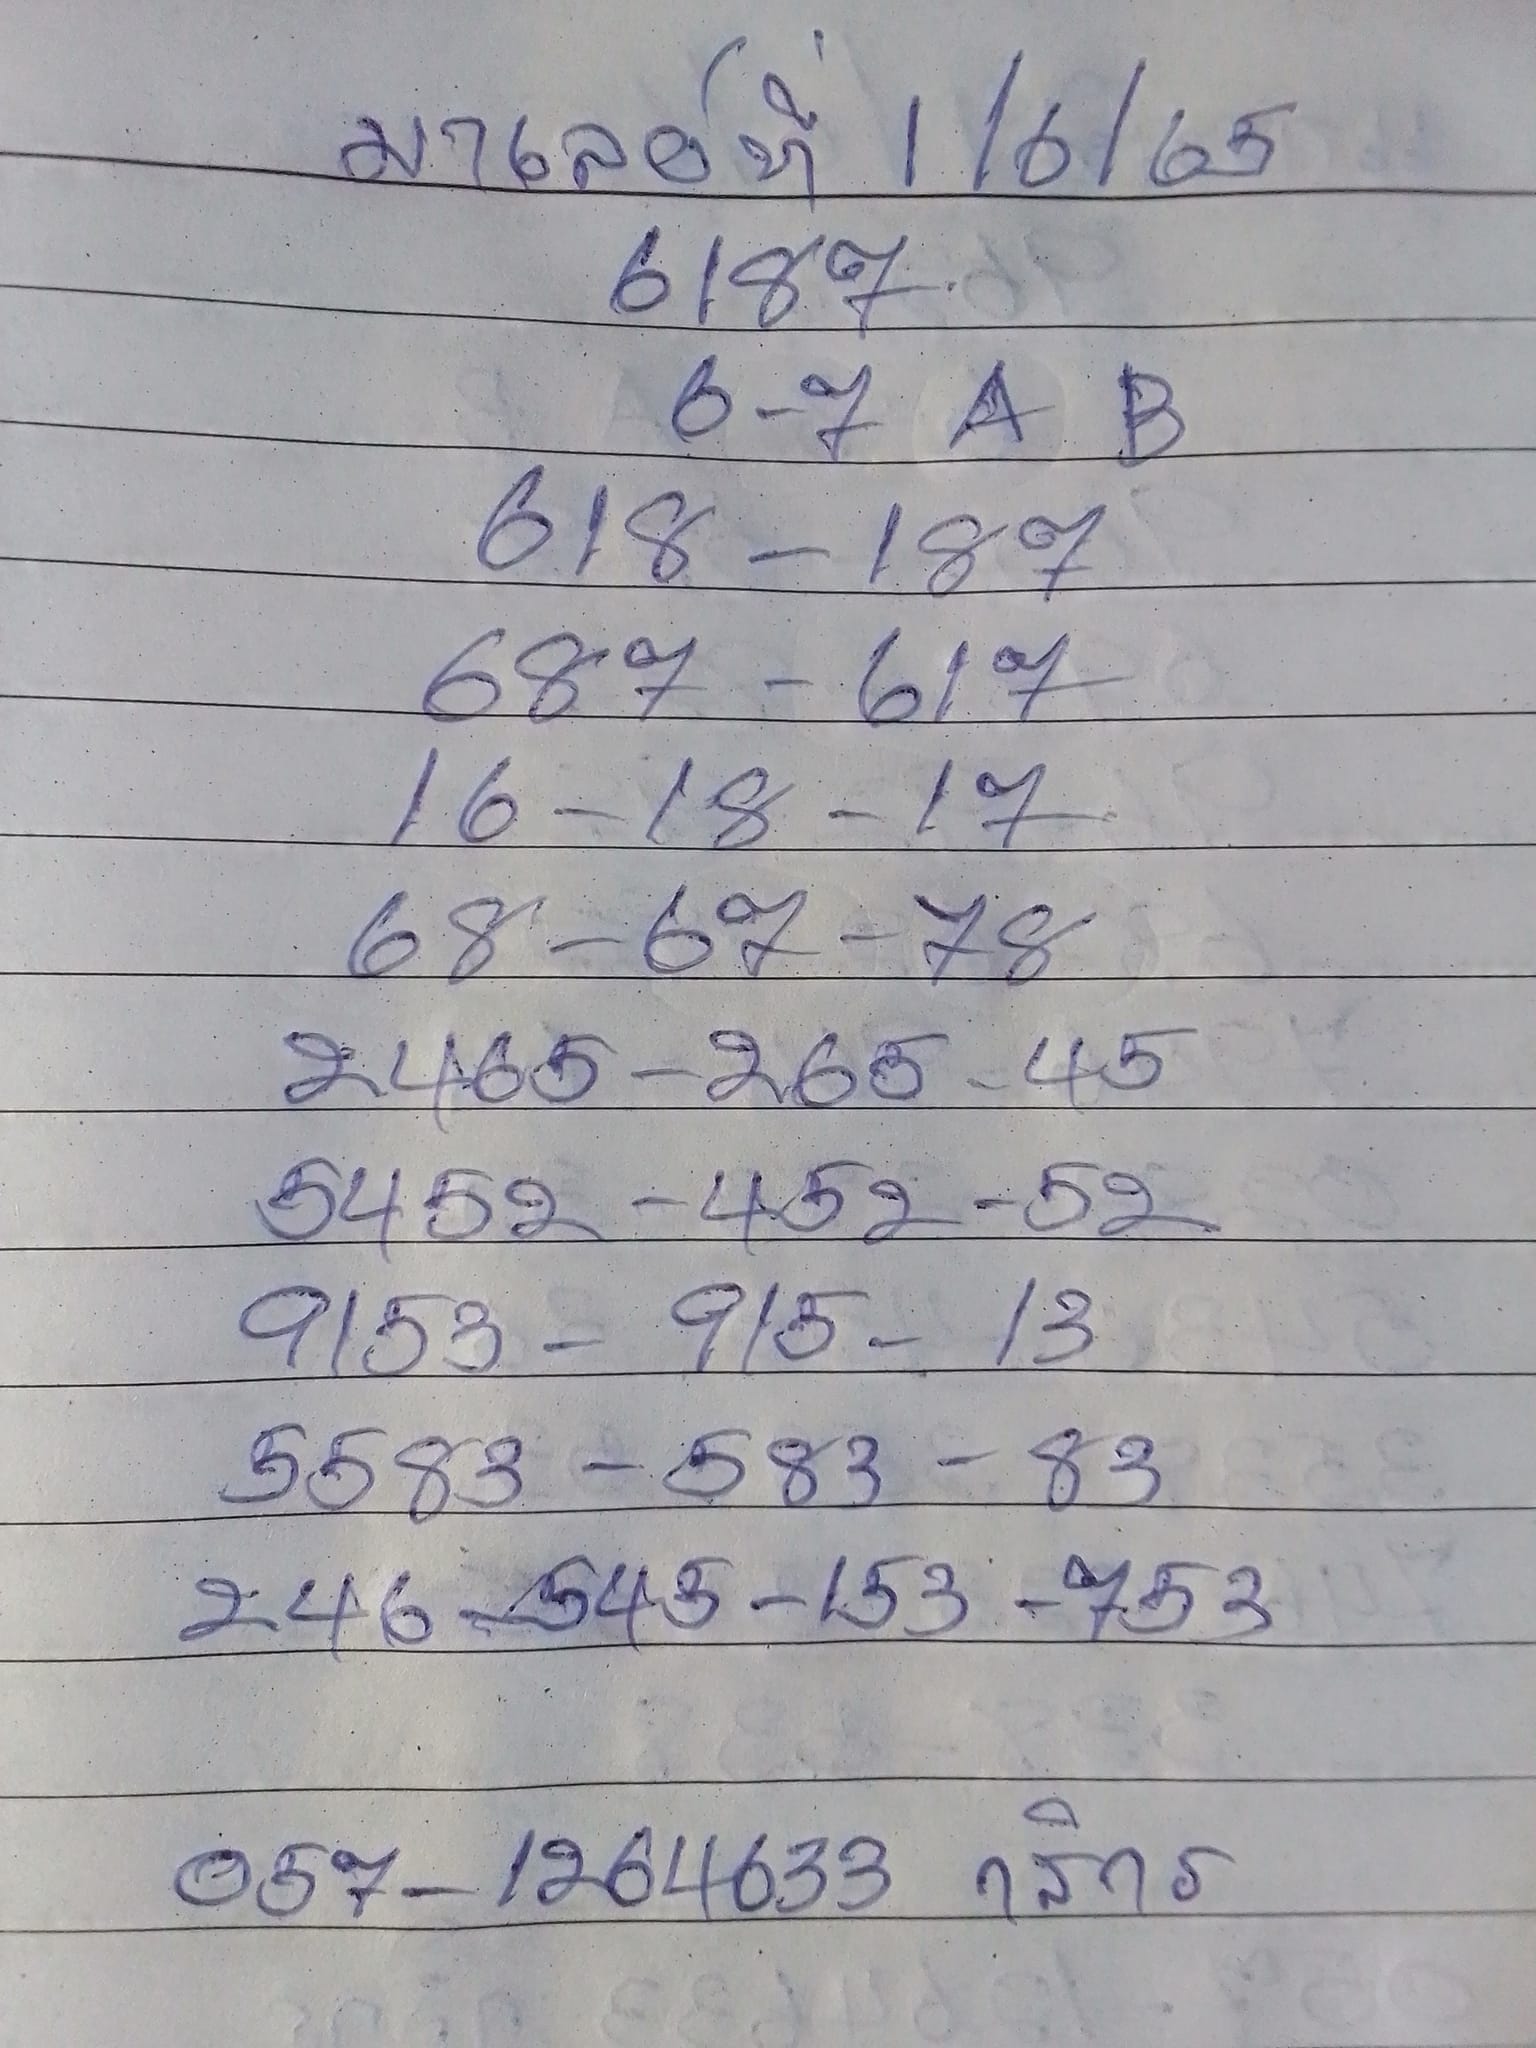 มาเลย์ที่ 1/6/65
6187
6-7 A B
618-187
687-617
16-18-17
68-67-78
2465-265-45
5452-452-52
9153-915-13
5583-583-83
246-545-153-753
057-1264633